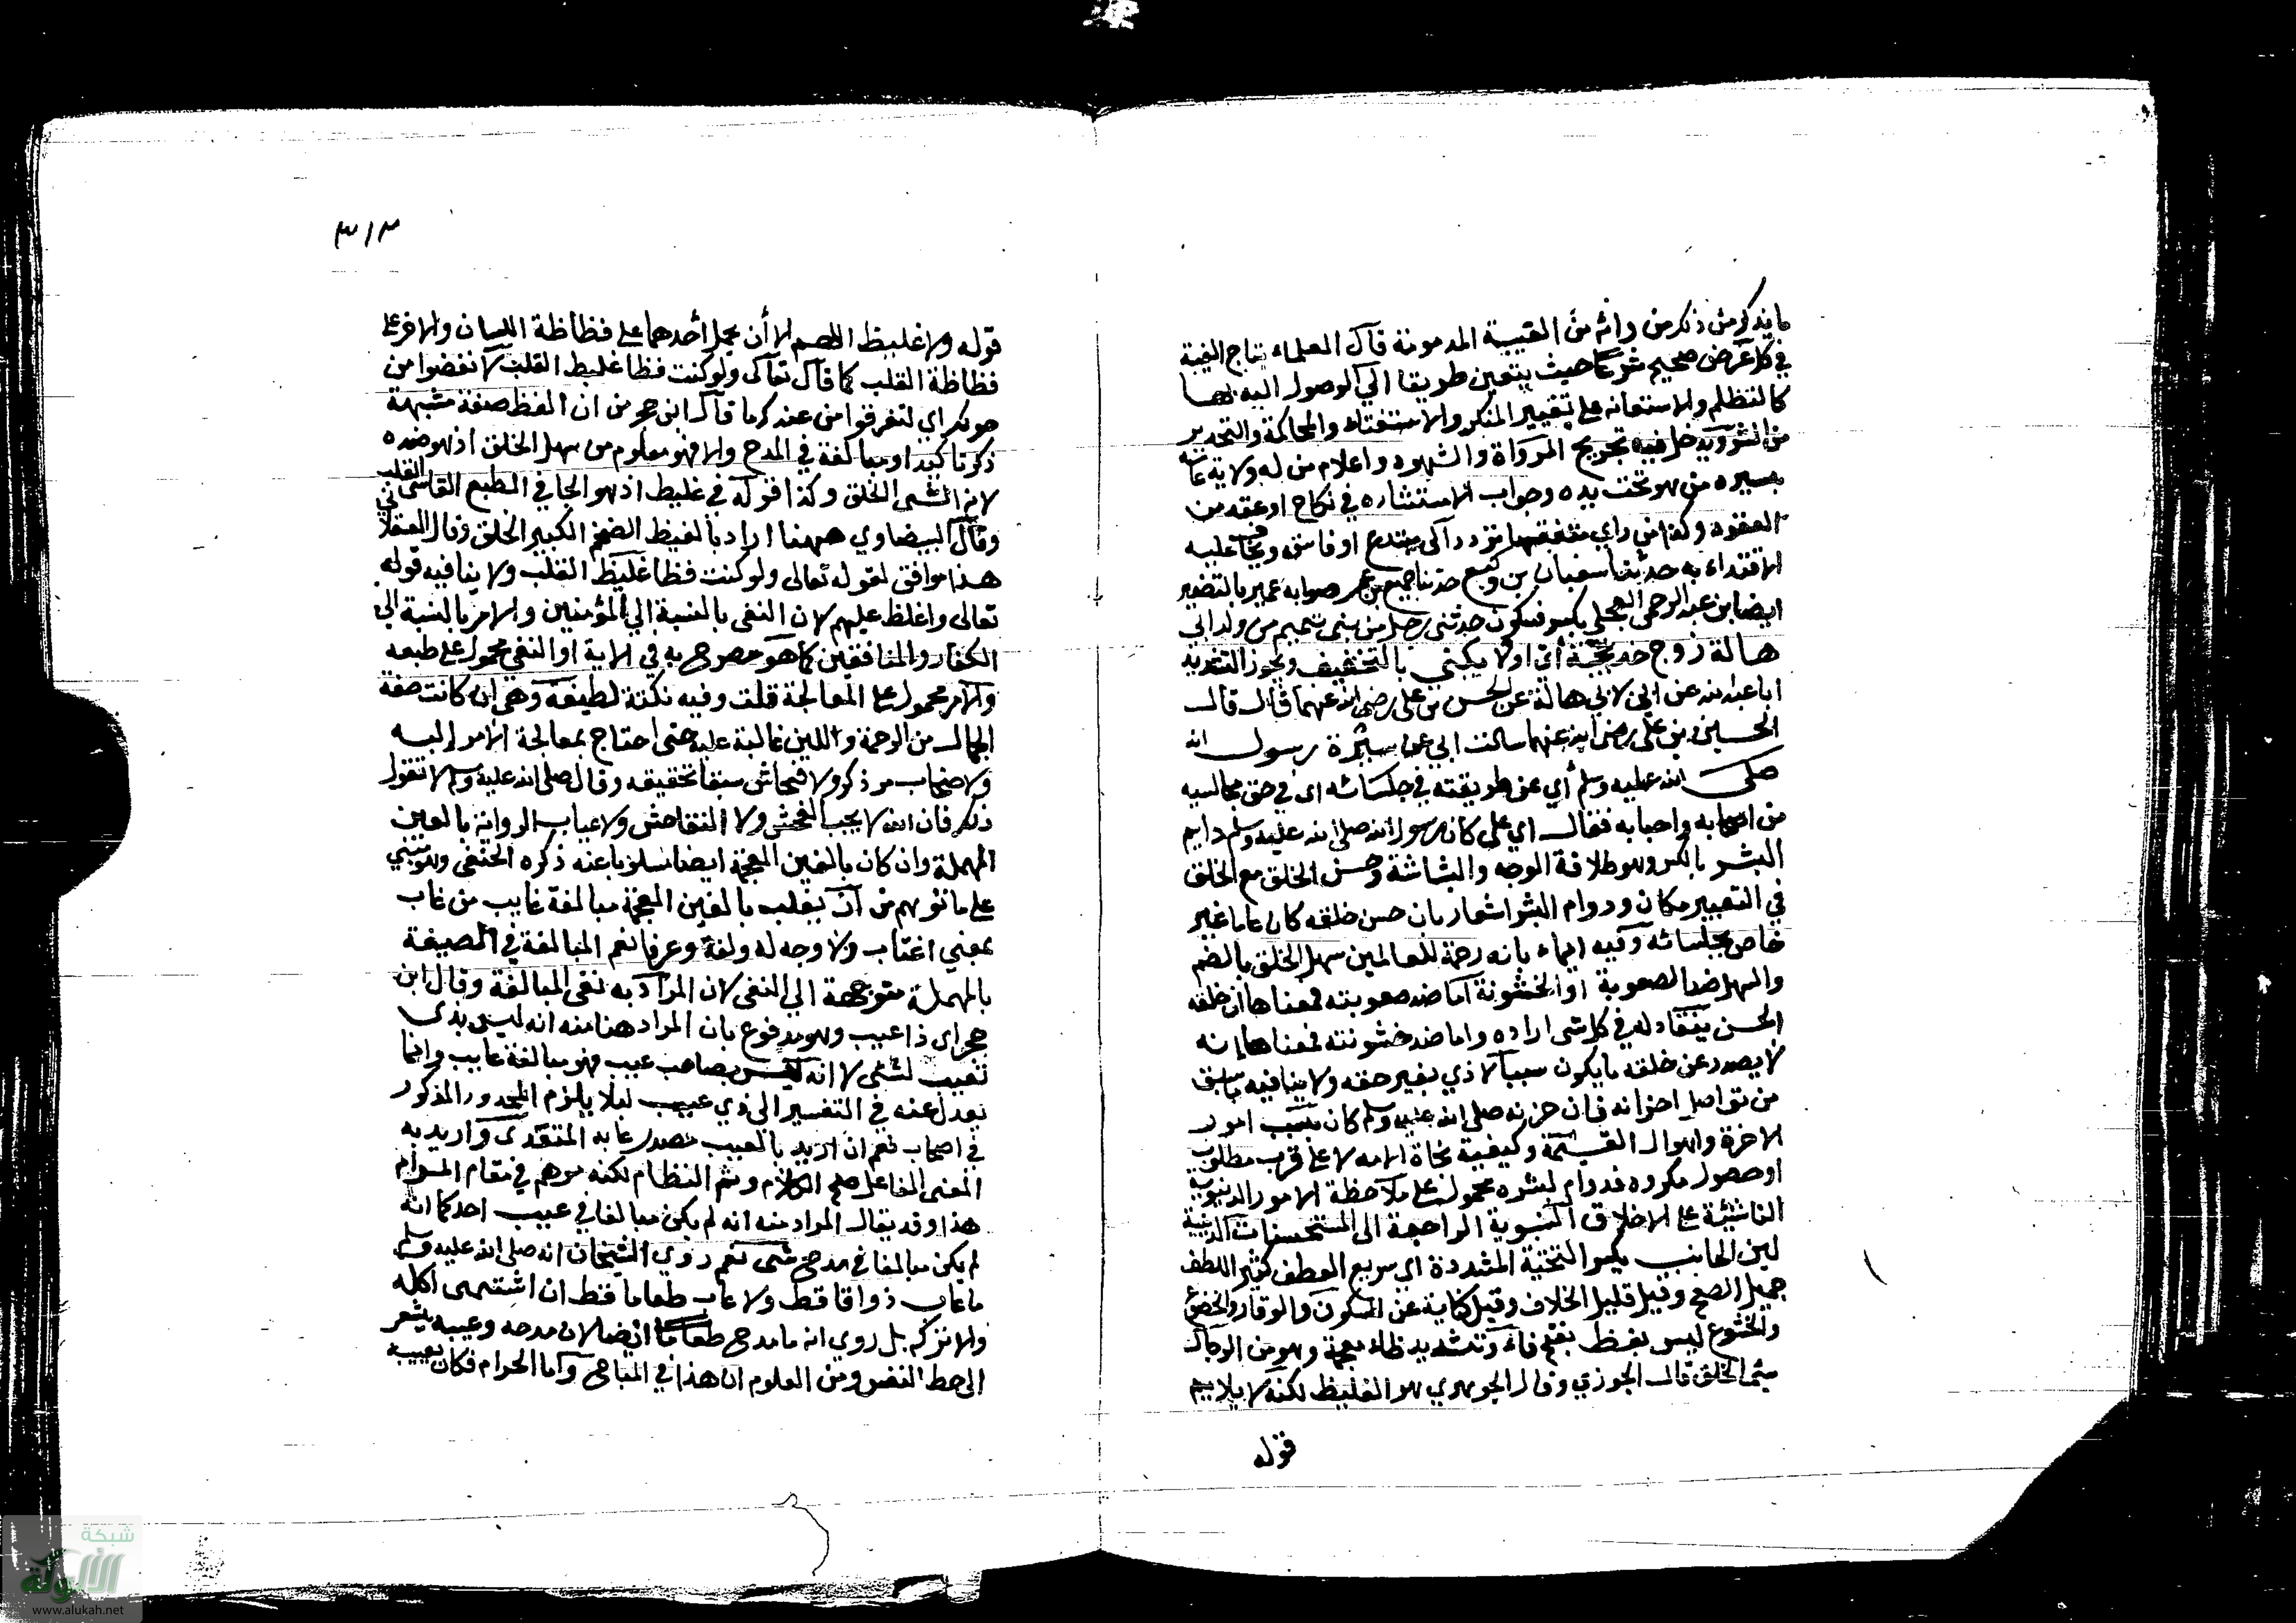 ما يذكر من ذكر من وانه من الغيبة المذمومة قال العلماء تباح الغيبة
في كل غرض صحيح شرعا حيث يتعين طريقا الي الوصول اليه بها
كالتظلم والاستعانه على تغيير المنكر والاستفتاء والمحاكمة والتحذير
من الشر ويدخل فيه تجريح الرواة والشهود واعلام من له ولاية عامة
بسيره من هو تحت يده وجواب الاستشاره في نكاح او عقد من
العقود وكذا من راي متفقها يتردد الى مبتدع او فاسق ويخاف عليه
الاقتداء به حدثنا سفيان بن وكيع حدثنا جميع بن عمر صوابه عمير بالتصغير
ايضا بن عبد الرحمن العجلي بكسر فسكون حدثني رجل من بني تميم من ولد ابي
هالة زوج خديجة أي اولا يكنى بالتخفيف ويجوز التشديد
ابا عبد الله عن ابن لابي هالة عن الحسن بن علي رضي الله عنهما قال قال
الحسين بن علي رضي الله عنهما سالت ابي عن سيرة رسول الله
صلى الله عليه وسلم أي عن طريقته في جلسائه اى في حق مجالسيه
من اصحابه واحبابه فقال اي علي كان رسول الله صلى الله عليه وسلم دايم
البشر بالكسر وهو طلاقة الوجه والبشاشة وحسن الخلق مع الخلق
في التعبير بكان ودوام البشر اشعار بان حسن خلقه كان عاما غير
خاص بجلسائه وفيه ايماء بانه رحمة للعالمين سهل الخلق بالضم
والسهل ضد الصعوبة او الخشونة اما ضد صعوبته فمعناها ان خلقه
الحسن ينقاد له في كل شى اراده واما ضد خشونته فمعناها انه
لا يصدر عن خلقه ما يكون سببا لاذي بغير حقه ولا ينافيه ما سبق
من تواصل احزانه فان حزنه صلى الله عليه وسلم كان بسبب امور
الاخرة واهوال القيمة وكيفية نجاة الامه لا على قرب مطلوب
او حصول مكروه فدوام بشره محمول على ملاحظة الامور الدنيوية
الناشئة على الاخلاق النبوية الراجعة الى المستحسنات الدينية
لين الجانب بكسر التحتية المشددة اي سريع العطف كثير اللطف
جميل الصفح وقيل قليل الخلاف وقيل كناية عن السكون والوقار والخضوع
والخشوع ليس بفظ بفتح فاء وتشديد ظاء معجمة وهو من الرجال
سئ الخلق قاله الجوزي وقال الجوهري هو الغليظ لكنه لا يلايم
قوله
٣١٣
قوله ولا غليظ اللهم الا أن يحمل أحدهما على فظاظة اللسان والاخر على
فظاظة القلب كما قال تعالى ولو كنت فظا غليظ القلب لانفضوا من
حولك اي لتفرقوا من عندك وما قال ابن حجر من ان الفظ صفة مشبهة
ذكر تاكيدا ومبالغة في المدح والا فهو معلوم من سهل الخلق اذ هو ضده
لانه السئى الخلق وكذا قوله في غليظ اذ هو الجافي الطبع القاسى القلب
وقال البيضاوي ههنا اراد بالغليظ الضخم الكبير الخلق وقال العسقلاني
هذا موافق لقوله تعالى ولو كنت فظا غليظ القلب ولا ينافيه قوله
تعالى واغلظ عليهم لان النفى بالنسبة الي المؤمنين والامر بالنسبة الي
الكفار والمنافقين كما هو مصرح به في الاية او النفي محمول على طبعه
والامر محمول على المعالجة قلت وفيه نكتة لطيفة وهي ان كانت صفة
الجمال من الرحمة واللين غالبة عليه حتى احتاج بمعالجة الامر اليه
ولا صخاب مر ذكره ولا فحاش سبق تحقيقه وقال صلى الله عليه وسلم لا تقولي
ذلك فان الله لا يحب الفحش ولا التفاحش ولا عياب الرواية بالعين
المهملة وان كان بالغين المعجمة ايضا مسلوبا عنه ذكره الحنفي وهو مبني
على ما توهم من ان يغلب بالغين المعجمة مبالغة غايب من غاب
بمعني اغتاب ولا وجه له ولغة وعرفا نعم المبالغة في الصيغة
بالمهملة متوجهة الي النفى لان المراد به نفى المبالغة وقال ابن
حجر اى ذا عيب وهو مدفوع بان المراد هنا منه انه ليس بذى
تعيب لشئى لا انه ليس بصاحب عيب فهو مبالغة عايب وانما
يعدل عنه في التفسير الى ذي عيب ليلا يلزم المحدور المذكور
في اصحاب نعم ان اريد بالعيب مصدر عابه المتعدى واريد به
المعنى الفاعل صح الكلام وتم النظام لكنه موهم في مقام المرام
هذا وقد يقال المراد منه انه لم يكن مبالغا في عيب احد كما انه
لم يكن مبالغا في مدح شى نعم روي الشيخان انه صلى الله عليه وسلم
ما عاب ذواقا قط ولا عاب طعاما قط ان اشتهى اكله
والا تركه بل روي انه ما مدح طعاما ايضا لان مدحه وعيبه يشعر
الى حظ النفس ومن المعلوم ان هذا في المباح واما الحرام فكان يعيبه
شبكة
الألوكة
www.alukah.net